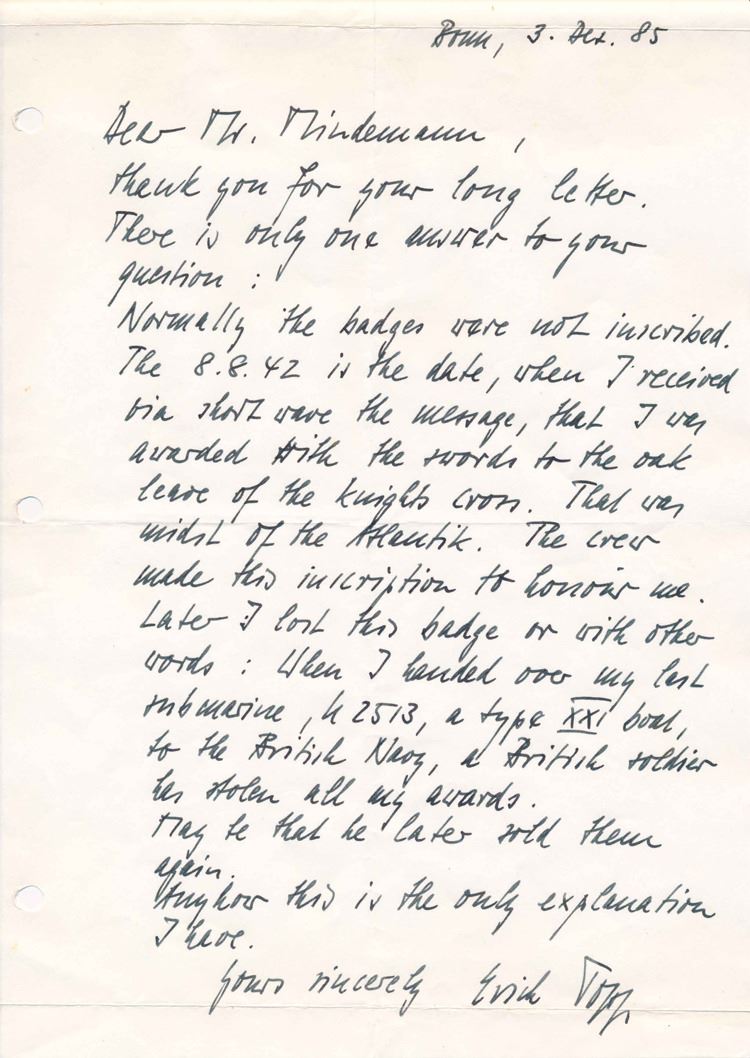 Bonn, 3. Dez. 85
Dear Mr. Mindemann,
thank you for your long letter.
There is only one answer to your
question :
Normally the badges were not inscribed.
The 8.8.42 is the date, when I received
via short wave the message, that I was
awarded with the swords to the oak
leave of the knights cross. That was
midst of the Atlantik. The crew
made this inscription to honour me.
Later I lost this badge or with other
words : When I handed over my last
submarine, U 2513, a type XXI boat,
to the British Navy, a British soldier
has stolen all my awards.
May be that he later sold them
again.
Anyhow this is the only explanation
I have.
Yours sincerely Erich Topp